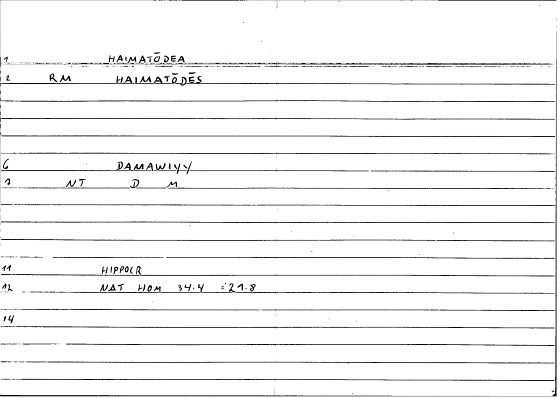 1 HAIMATŌDEA
2 RM HAIMATŌDĒS
6 DAMAWIYY
NT D M
11 HIPPOCR
12 NAT HOM 34.4 =21.8
14